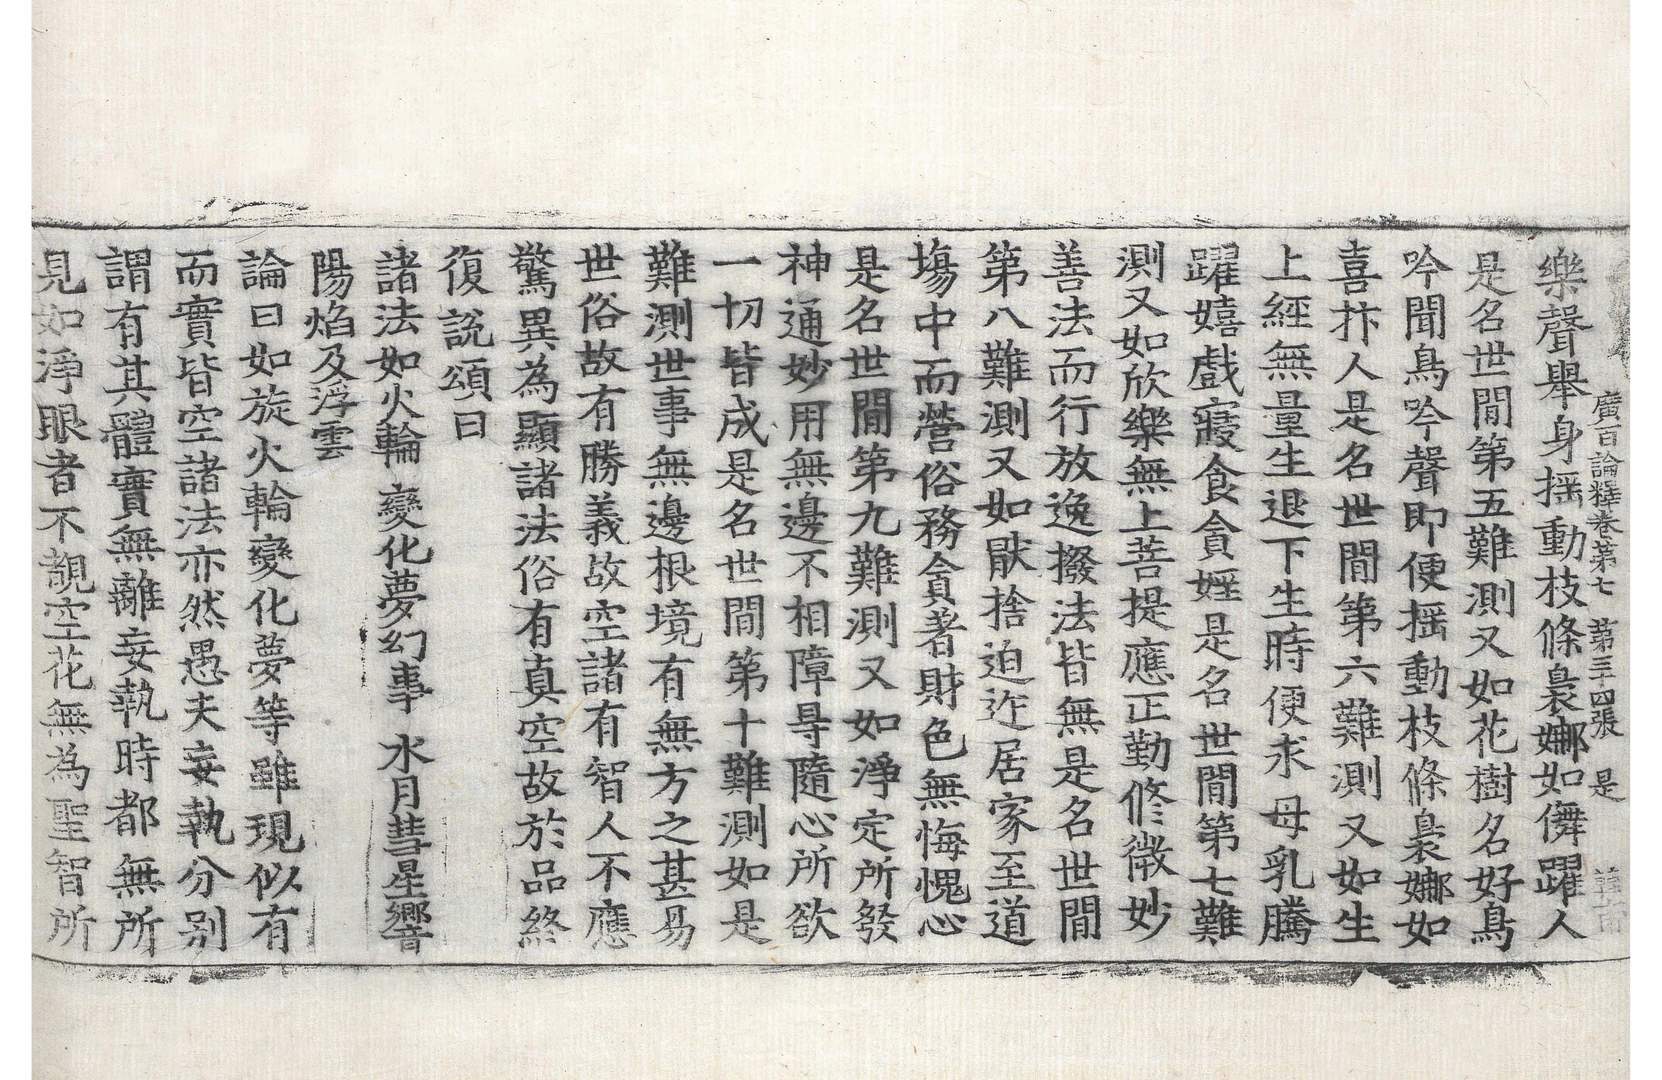 廣百論釋卷第七 第三四張 是
樂聲舉身揺動枝條裊娜如儛躍人
是名世間第五難測又如花樹名好鳥
吟聞鳥吟聲即便揺動枝條裊娜如
喜抃人是名世間第六難測又如生
上經無量生退下生時便求母乳騰
躍嬉戲寢食貪婬是名世間第七難
測又如欣樂無上菩提應正勤修微妙
善法而行放逸撥法皆無是名世間
第八難測又如厭捨迫迮居家至道
塲中而營俗務貪著財色無悔愧心
是名世間第九難測又如淨定所發
神通妙用無邊不相障㝵隨心所欲
一切皆成是名世間第十難測如是
難測世事無邊根境有無方之甚易
世俗故有勝義故空諸有智人不應
驚異為顯諸法俗有真空故於品終
復說頌曰
諸法如火輪 變化夢幻事 水月彗星響
陽焰及浮雲
論曰如旋火輪變化夢等雖現似有
而實皆空諸法亦然愚夫妄執分別
謂有其體實無離妄執時都無所
見如淨眼者不覩空花無為聖智所